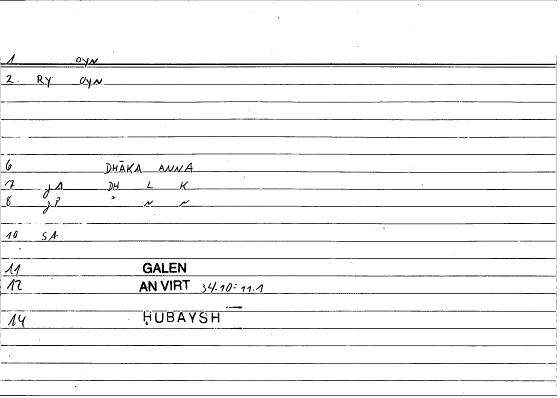 1 oyn
2. RY oyn
6 DHĀKA ANNA
7 jA DH L K
8 jP " ~ ~
10 SA
11 GALEN
12 AN VIRT 34.10-11.1
14 ḤUBAYSH